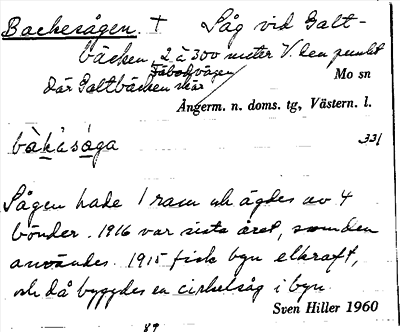 Backesågen. † Såg vid Galt-
bäcken, 2 à 300 meter V. den punkt
där Galtbäcken skär fäbodvägen
Mo sn
Ångerm. n. doms. tg, Västern. l.
331
bàkåsåga
Sågen hade 1 ram och ägdes av 4
bönder. 1916 var sista året, som den
användes. 1915 fick byn elkraft,
och då byggdes en cirkelsåg i byn.
Sven Hiller 1960
89